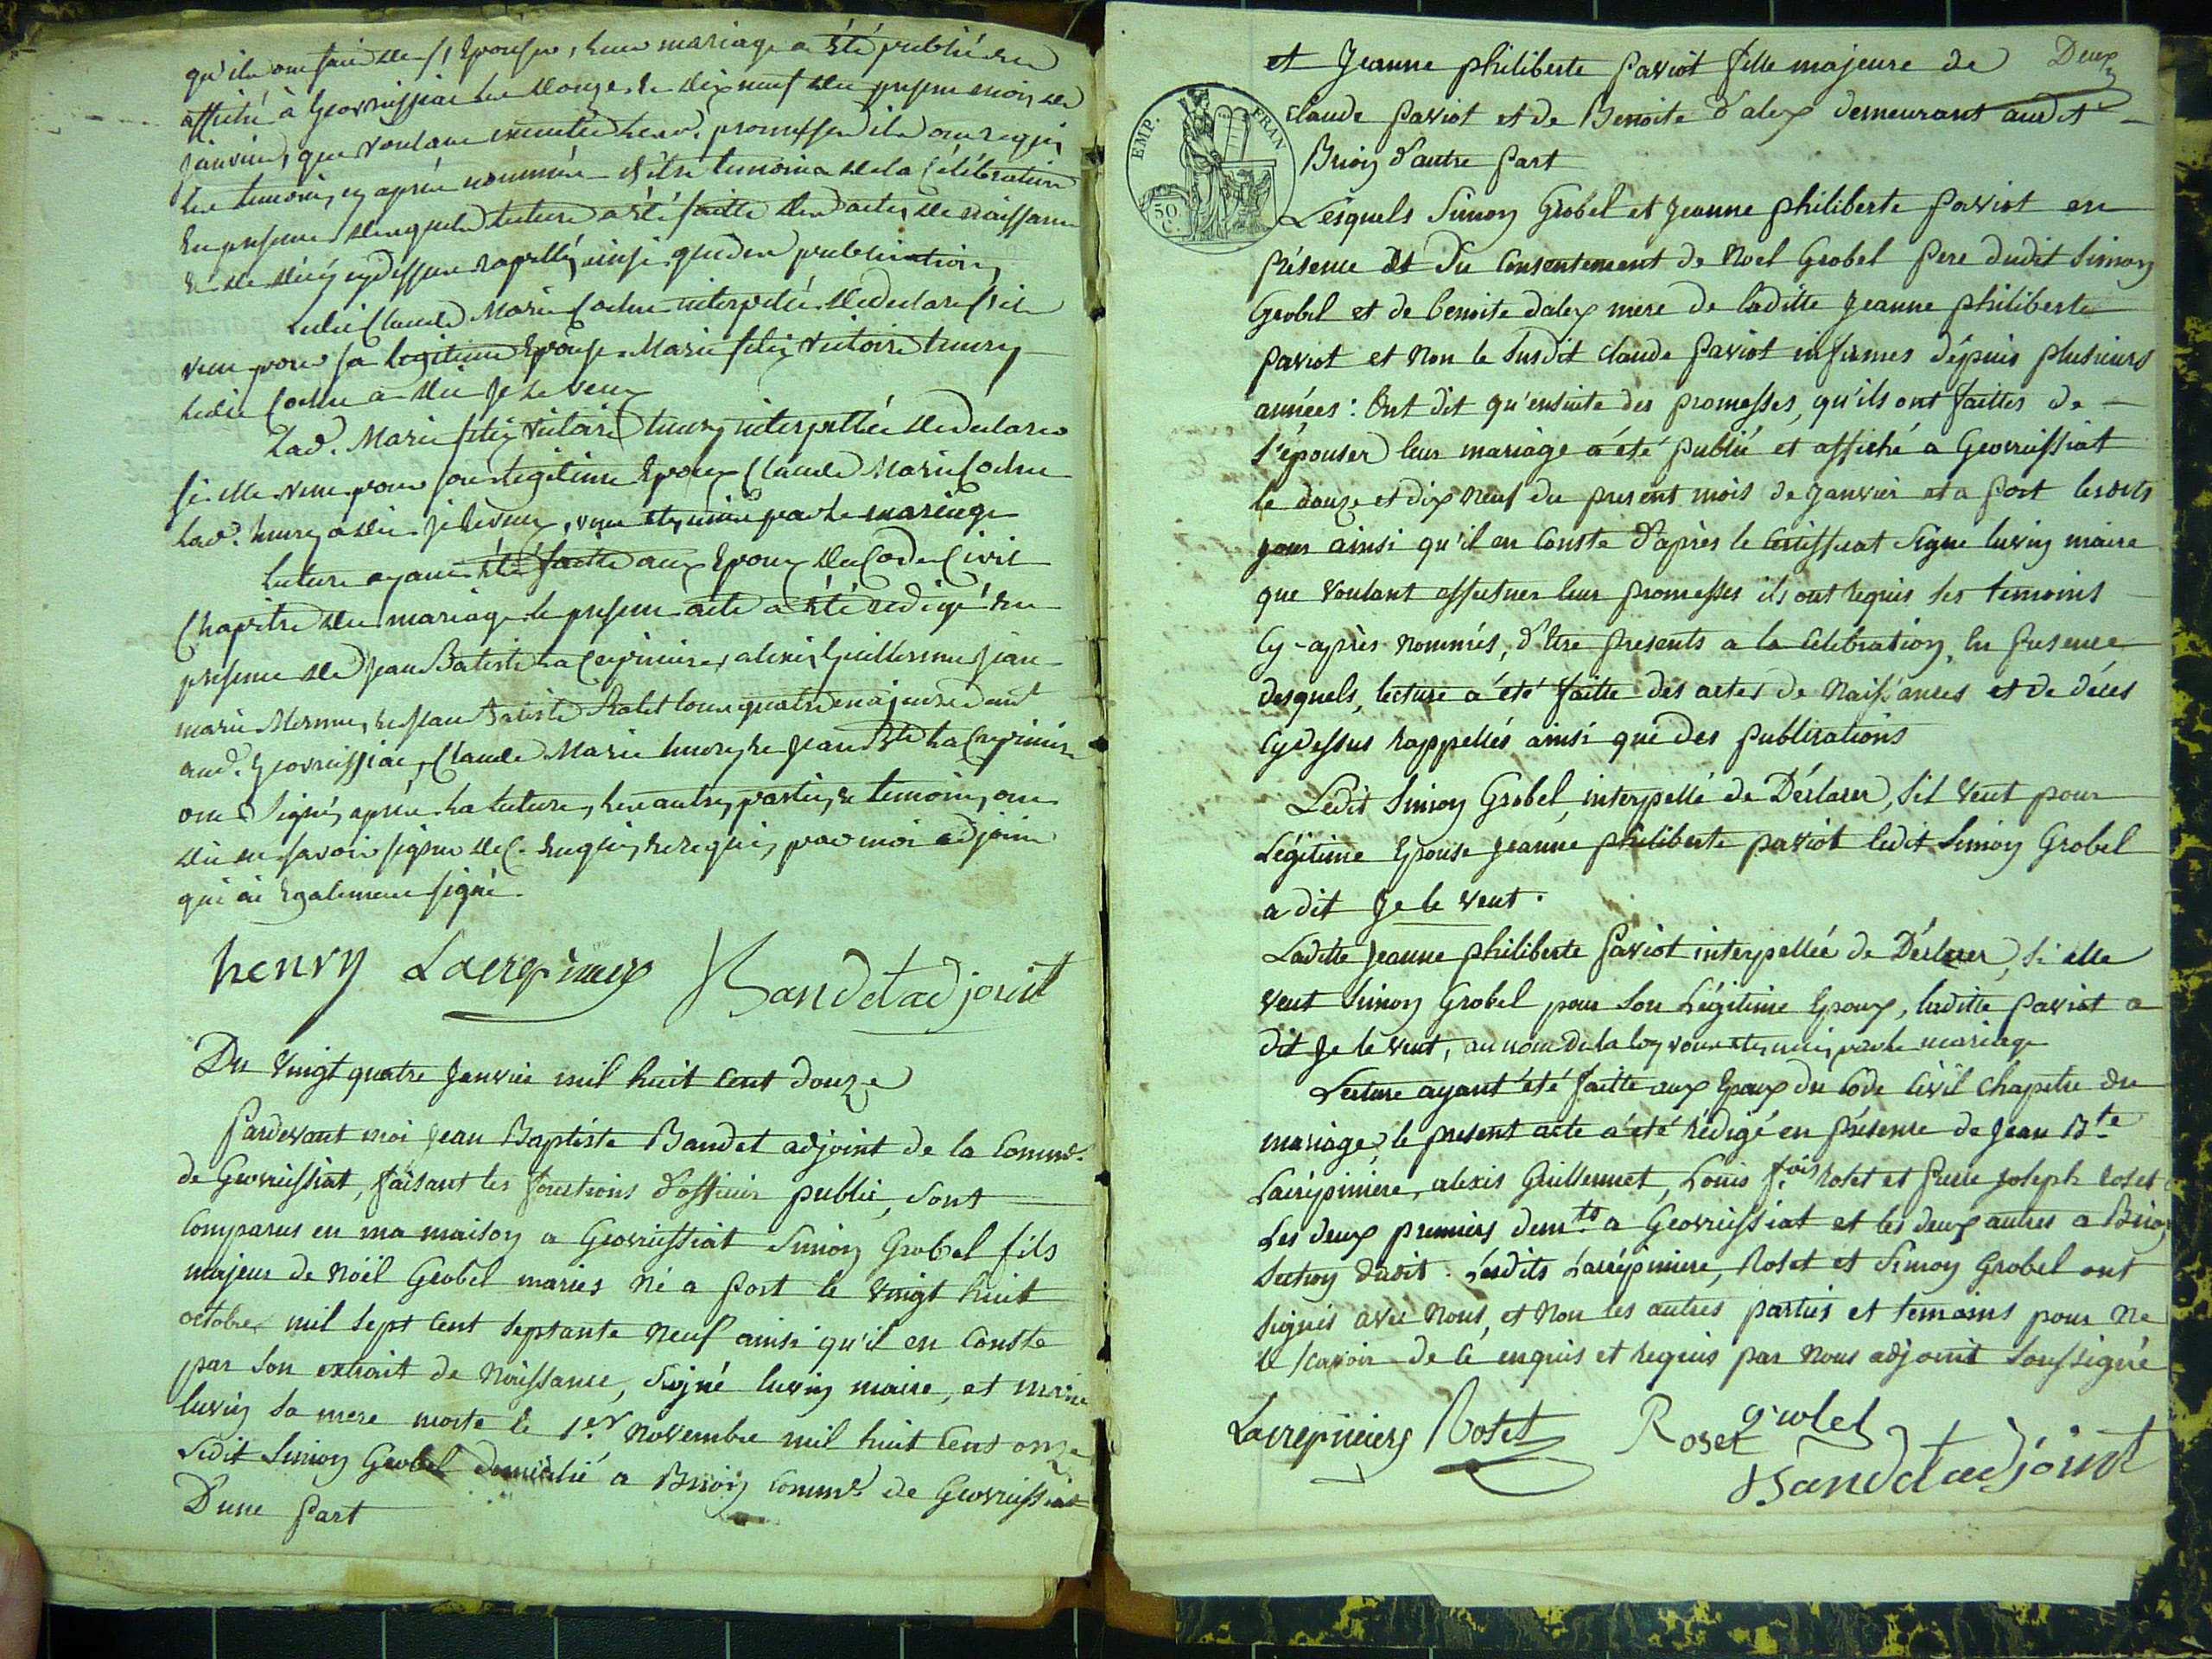 qu'ils ont fait de s'Epouser, leur mariage a été publié et
affiché à Geovreissiat les douze et dix neuf du present mois de
janvier, que voulant executer leurs promesses ils ont requis
les temoins cy après nommés d'être temoins de la Célébration
En presence desquels lecture a été faitte des actes de naissance
et de décès cy dessus rapellés ainsi que des publications
Ledit Claude Marie Cochu interpellé de declarer s'il
veut pour sa legitime Epouse Marie felix Victoire henry
ledit Cochu a dit Je le veux
Lad. Marie felix Victoire henry interpellée de declarer
si elle veut pour son legitime Epoux Claude Marie Cochu
lad. henry a dit je le veux, vous etes unis par le mariage
Lecture ayant été faitte aux Epoux du Code Civil
Chapitre du mariage le present acte a été redigé en
presence de Jean Batiste La Crepiniere, alexis Guillermet Jean
marie et Jean Batiste tous quatre majeurs
aud. Geovreissiat, Claude Marie henry et Jean Bte La Crepiniere
ont Signé, après la lecture, les autres parties et temoins, ont
dit ne savoir signer de ce Enquis et requis, par moi adjoint
qui ai Egalement signé.
henry Lacrepiniere Bandet adjoint
Du Vingt quatre Janvier mil huit Cent douze
Pardevant moi Jean Baptiste Bandet adjoint de la Commne.
de Geovreissiat, faisant les fonctions d'officier public, Sont
Comparus en ma maison a Geovreissiat Simon Grobel fils
majeur de Noël Grobel mariés Né a Port le vingt huit
octobre mil Sept Cent Septante Neuf ainsi qu'il en Conste
par Son extrait de Naissance, Signé luvin maire, et marie
luvin Sa mere morte le 1er Novembre mil huit Cent onze
Ledit Simon Grobel domicilié a Brion Commne de Geovreissiat
D'une Part
Deux
et Jeanne philiberte Paviot fille majeure de
Claude Paviot et de Benoite d'alex demeurant audit
Brion d'autre Part
EMP. FRAN
50 C.
Lesquels Simon Grobel et Jeanne philiberte Paviot en
Présence et du Consentement de Noel Grobel Pere dudit Simon
Grobel et de benoite dalex mere de laditte Jeanne philiberte
Paviot et Non le Susdit Claude Paviot infirmes dépuis plusieurs
années: Ont dit qu'ensuite des promesses, qu'ils ont faittes de
S'épouser leur mariage a été publié et affiché a Geovreissiat
le douze et dix Neuf du present mois de Janvier et a Port lesdits
jour ainsi qu'il en Conste d'après le Certifficat Signé luvin maire
que Voulant effectuer leur promesses ils ont requis les temoins
Cy-après Nommés, d'être presents a la Célébration, En presence
desquels, lecture a été faitte des actes de Naissances et de décés
Cydessus rappellés ainsi que des Publications
Ledit Simon Grobel, interpellé de Déclarer, S'il veut pour
Légitime Epouse Jeanne philiberte Paviot ledit Simon Grobel
a dit Je le veut.
Laditte Jeanne philiberte Paviot interpellée de Déclarer, Si elle
veut Simon Grobel pour Son Légitime Epoux, laditte Paviot a
dit Je le veut, au nom de la loy vous etes unis par le mariage
Lecture ayant été faitte aux Epoux du Code Civil Chapitre du
mariage le present acte a été rédigé en présense de Jean Bte
Lacrépiniére, alexis Guillermet, Louis f.ois Rotet et Pierre Joseph Rotet
Les deux premiers demts a Geovreissiat et les deux autres a Brion
Section dudit. Lesdits Lacrépiniere, Rotet et Simon Grobel ont
Signés avec Nous, et Non les autres parties et temoins pour Ne
le sçavoir de Cé enquis et requis par Nous adjoint Soussigné
Lacrepiniere Rotet Roset grolel
Bandet adjoint